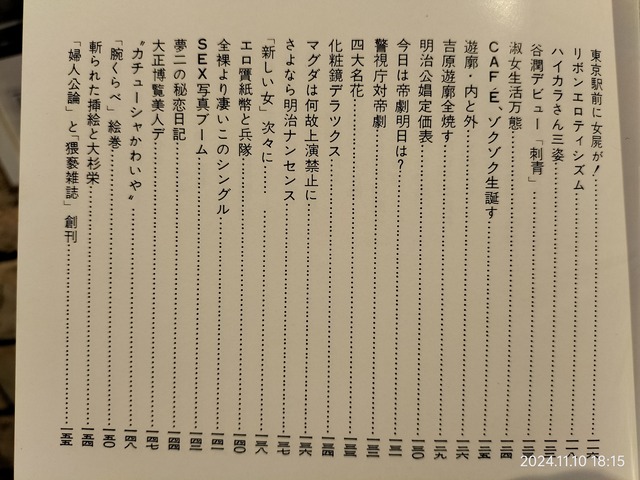 東京駅前に女屍が！……一一六
リボンエロティシズム……一一八
ハイカラさん三姿……
谷潤デビュー「刺青」……
淑女生活万態……一二四
CAFÉ、ゾクゾク生誕す……一二五
遊廓・内と外……一二六
吉原遊廓全焼す……一二九
明治公娼定価表……一三〇
今日は帝劇明日は？……一三一
警視庁対帝劇……一三二
四大名花……一三三
化粧鏡デラツクス……一三四
マグダは何故上演禁止に……一三六
さよなら明治ナンセンス……一三七
「新しい女」次々に……一三八
エロ贋紙幣と兵隊……一四〇
全裸より凄いこのシングル……一四一
SEX写真ブーム……一四二
夢二の秘恋日記……一四四
大正博覧美人デ……一四七
〝カチューシャかわいや〟……一四八
「腕くらべ」絵巻……一五〇
斬られた挿絵と大杉栄……一五四
「婦人公論」と「猥褻雑誌」創刊……一五五
2024.11.10 18:15